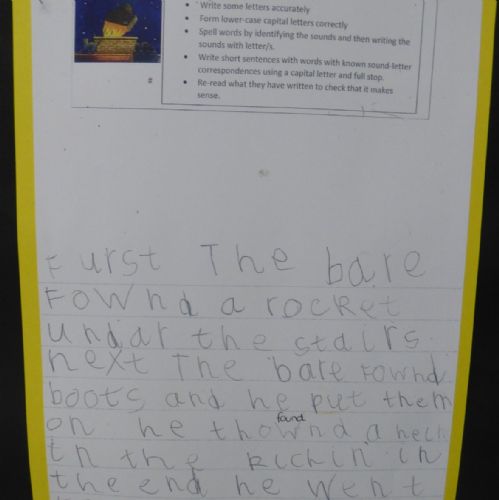 Write some letters accurately
Form lower-case capital letters correctly
Spell words by identifying the sounds and then writing the
sounds with letter/s.
Write short sentences with words with known sound-letter
correspondences using a capital letter and full stop.
Re-read what they have written to check that it makes
sense.
Furst The bare
Fownd a rocket
undar the stairs
next The bare Fownd
boots and he put them
found
on he thownd a
in the kichin in
the end he went